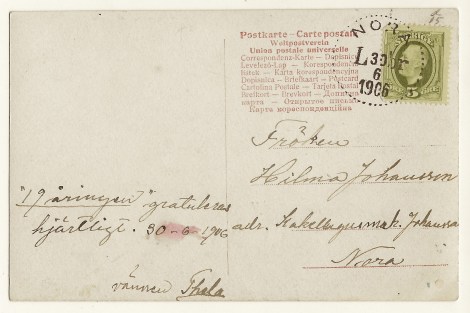 Postkarte - Carte postale
Weltpostverein
Union postale universelle
Correspondenz-Karte - Dopisnice
Levelező-Lap - Korespondencni
listek - Karta korespondencyjna
Dopisnica - Briefkaart - Postcard
Cartolina Postale - Tarjeta Postal
Brefkort - Brevkort - Дописна
карта - Открытое письмо
Карта кореспонденційна
NORA
L 30
6
1906
5
Fröken
Hilma Johansson
adr. Kakelugnsmak. Johansson
Nora
"19 åringen" gratuleras
hjärtligt. 30-6-1906
vännen Thela